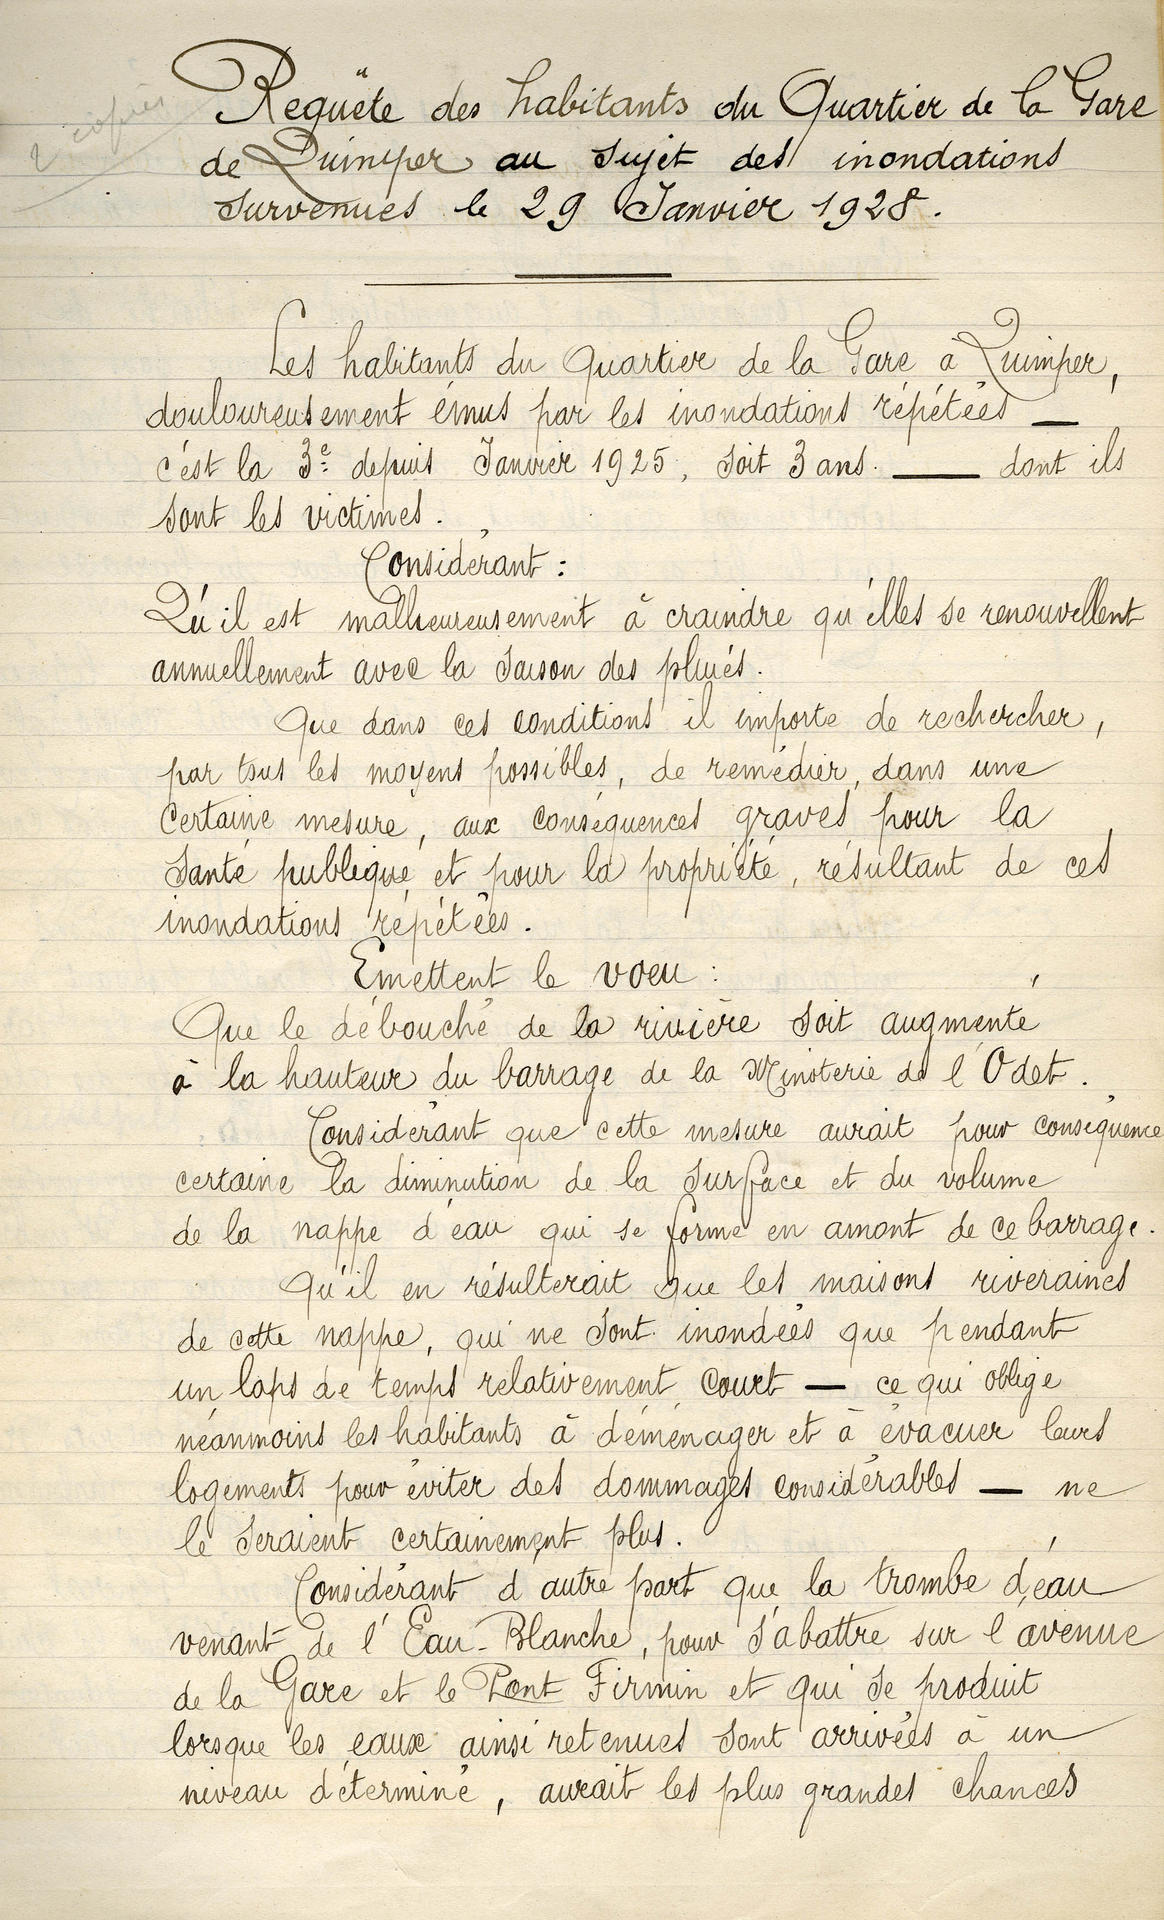 2 copies
Requête des habitants du Quartier de la Gare
de Quimper au sujet des inondations
survenues le 29 Janvier 1928.
Les habitants du Quartier de la Gare à Quimper,
douloureusement émus par les inondations répétées —
c'est la 3e depuis Janvier 1925, soit 3 ans. — dont ils
sont les victimes.
Considérant :
Qu'il est malheureusement à craindre qu'elles se renouvellent
annuellement avec la saison des pluies.
Que dans ces conditions il importe de rechercher,
par tous les moyens possibles, de remédier, dans une
certaine mesure, aux conséquences graves pour la
santé publique et pour la propriété, résultant de ces
inondations répétées.
Emettent le voeu :
Que le débouché de la rivière soit augmenté
à la hauteur du barrage de la Minoterie de l'Odet.
Considérant que cette mesure aurait pour conséquence
certaine la diminution de la surface et du volume
de la nappe d'eau qui se forme en amont de ce barrage.
Qu'il en résulterait que les maisons riveraines
de cette nappe, qui ne sont inondées que pendant
un laps de temps relativement court — ce qui oblige
néanmoins les habitants à déménager et à évacuer leurs
logements pour éviter des dommages considérables — ne
le seraient certainement plus.
Considérant d'autre part que la trombe d'eau
venant de l'Eau-Blanche, pour s'abattre sur l'avenue
de la Gare et le Pont Firmin et qui se produit
lorsque les eaux ainsi retenues sont arrivées à un
niveau déterminé, aurait les plus grandes chances